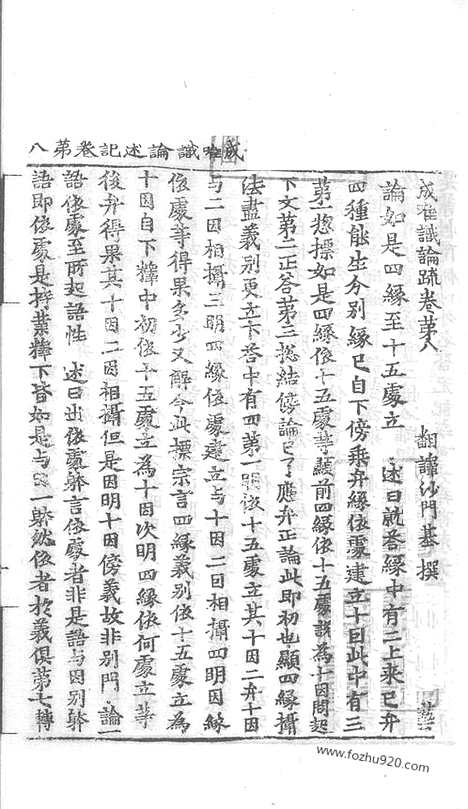 成唯識論述記卷第八
成唯識論疏卷第八　翻譯沙門基撰
論如是四緣至十五處立　述曰就答緣中有二上來已弁
四種能生分別緣已自下傍乘弁緣依處建立十因此中有三
第一揔摽如是四緣依十五處等顯前四緣依十五處該為十因問起
下文第二正答第三揔結傍論已了應弁正論此即初也顯四緣攝
法盡義別更立下荅中有四第一明依十五處立其十因二弁十因
与二因相攝三明四緣依處建立与十因二因相攝四明因緣
依處等得果多少又解今此摽宗言四緣義別依十五處立為
十因自下釋中初依十五處立為十因次明四緣依何處立等
後弁得果其十因二因相攝但是因明十因傍義故非別門　論一
語依處至所起語性　述曰出依處躰言依處者非是語与因別躰
語即依處是持業釋下皆如是与因一躰然依者於義俱第七轉
www.fozhu920.com